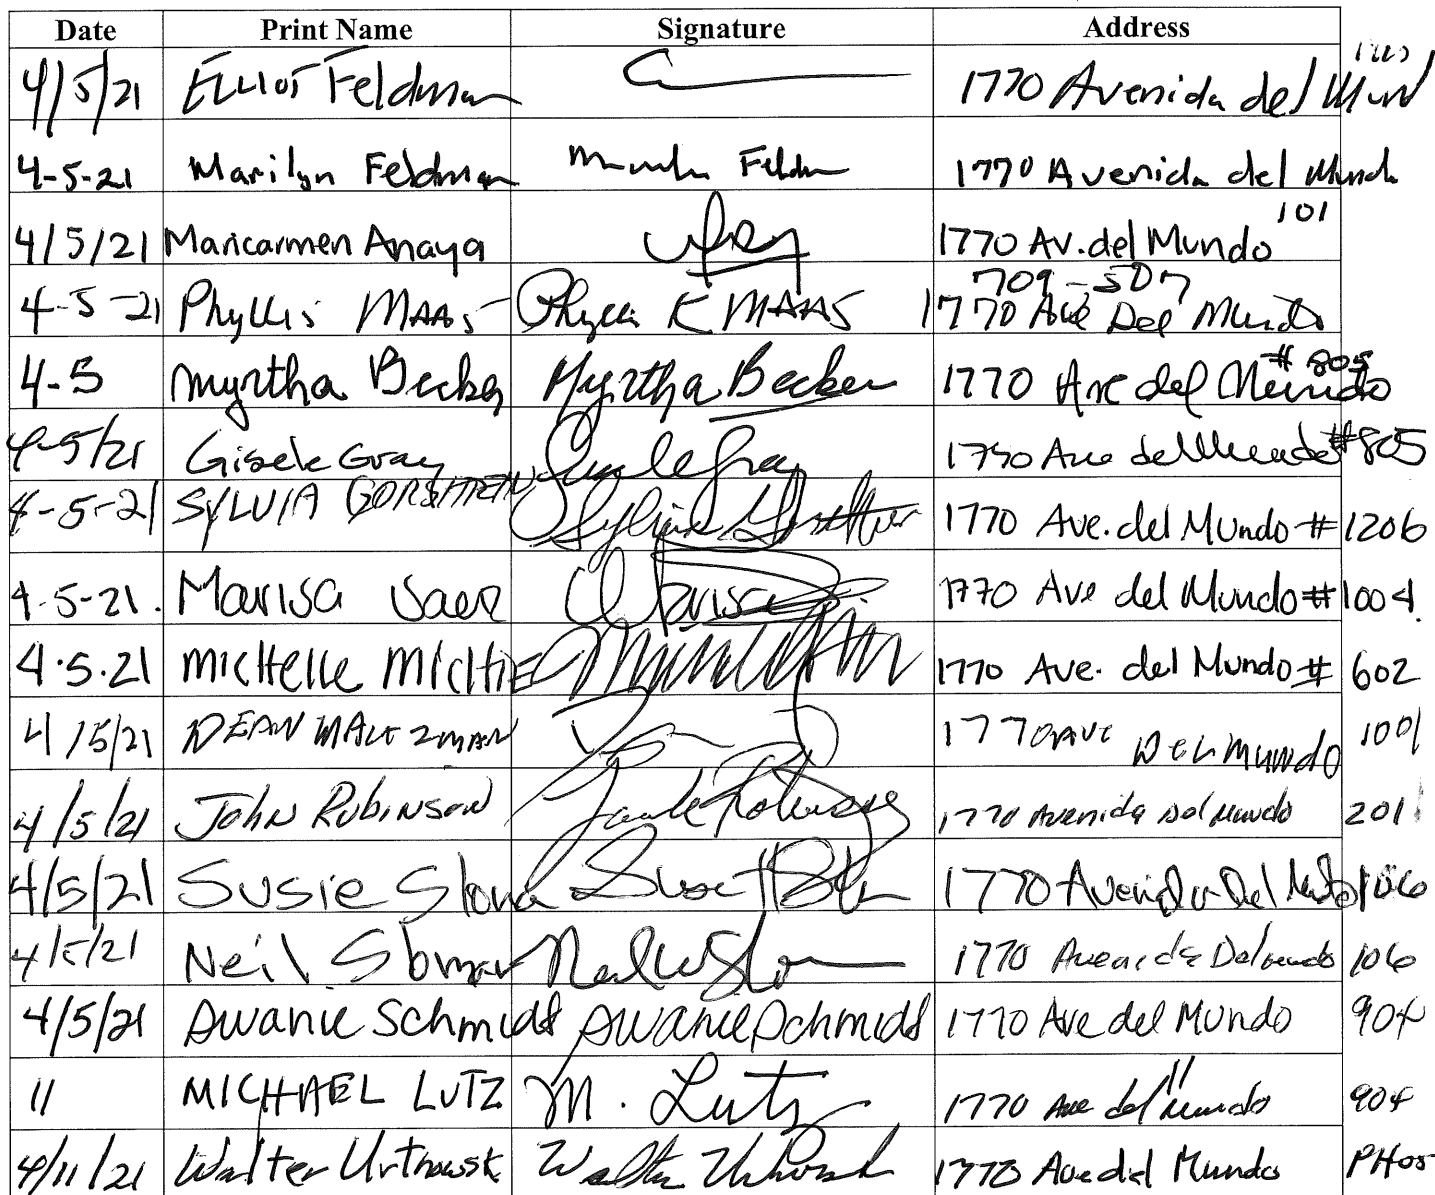 Date Print Name Signature Address
4/5/21 Elliot Feldman 1770 Avenida del Mun
4-5-21 Marilyn Feldman 1770 Avenida del Mundo
4/5/21 Maricarmen Anaya 1770 Av. del Mundo 101
4-5-21 Phyllis MAAS Phyllis K MAAS 709-507 1770 Ave Del Mundo
4-5 Myrtha Becker Myrtha Becker 1770 Ave del Mundo # 805
4-5/21 Gisele Gray Gisele Gray Ave del Mundo #805
4-5-21 SYLVIA 1770 Ave. del Mundo # 1206
4-5-21. Marisa Saez Marisa 1770 Ave del Mundo # 1004
4.5.21 Michelle 1770 Ave. del Mundo # 602
4/5/21 DEAN MALTZMAN 1770 Ave Del Mundo 1001
4/5/21 John Robinson 1770 Avenida Del Mundo 201
4/5/21 Susie 1770 Avenida Del Mundo 106
4/5/21 Neil 1770 Avenida Del Mundo 106
4/5/21 Dwanie Schmidt Dwanie Schmidt 1770 Ave del Mundo 904
11 MICHAEL LUTZ M. Lutz 1770 Ave del Mundo 904
4/11/21 Walter Walter 1770 Ave del Mundo PH05